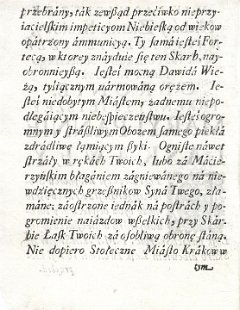 przebrány, ták zewſząd przećiwko nieprzy-
iaćielſkim impetycyom Niebieſką od wiekow
opátrzony ámmunicyą. Ty ſamá ieſteś For-
tecą, w ktorey znáyduie ſię ten Skarb, nay-
obronnieyſzą. Ieſteś mocną Dawidá Wie-
żą, tyśiącznym uármowáną orężem. Ieſ-
teś niedobytym Miáſtem, żadnemu niepo-
dlegáiącym niebeſpieczenſtwu. Ieſteś ogro-
mnym y ſtráſzliwym Obozem ſamego piekłá
zdradliwę łamiącym ſzyki. Ogniſte náwet
ſtrzáły w rękách Twoich, lubo zá Máćie-
rzyńſkim błagániem zágniewánego ná nie-
wdzięcznych grzeſznikow Syná Twego, złá-
máne; záoſtrzone iednák ná poſtrách y po-
gromienie naiázdow wſzelkich, przy Skár-
bie Łaſk Twoich zá oſobliwą obronę ſtáną.
Nie dopiero Stołeczne Miáſto Krákow w